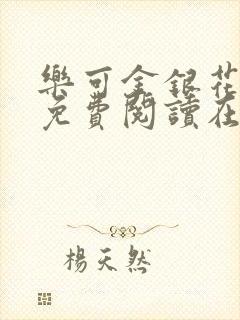 樂可金銀花
免費閱讀在
楊天然